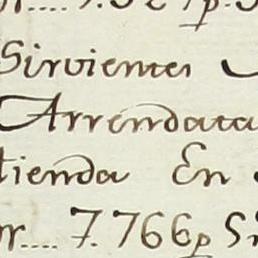 Sirvientes
Arrendata
tienda En
7.766p S